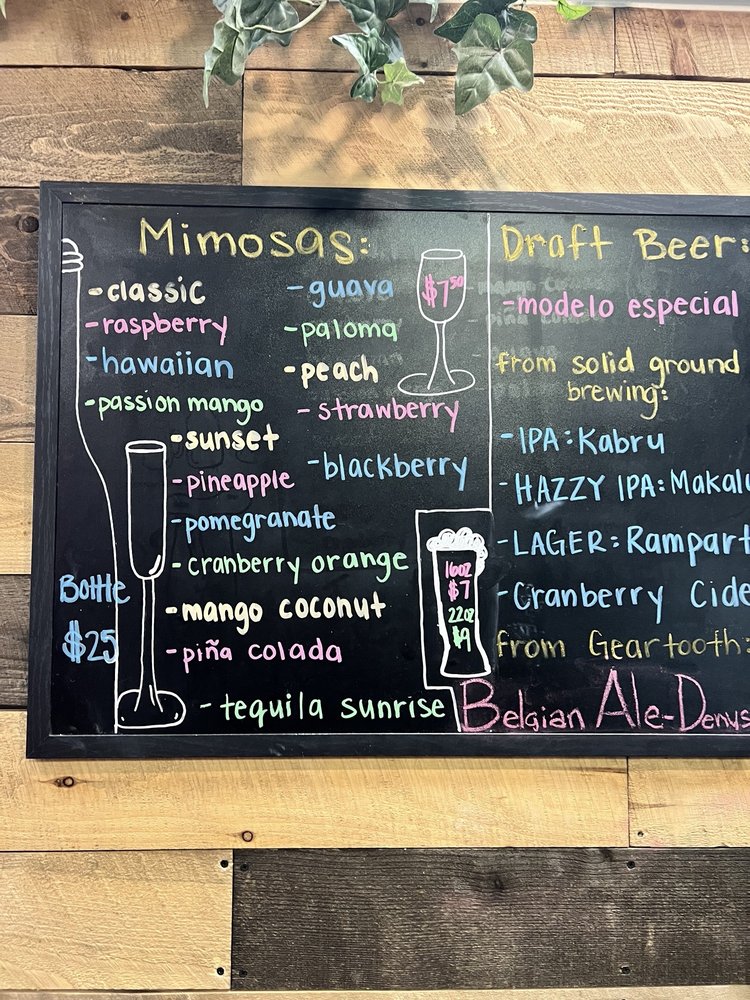 Mimosas:
-classic
-raspberry
-hawaiian
-passion mango
-sunset
-pineapple
-pomegranate
-cranberry orange
-mango coconut
-piña colada
-tequila sunrise
-guava
-paloma
-peach
-strawberry
-blackberry
$7⁵⁰
Bottle
$25
16oz
$7
22oz
$9
Draft Beer:
-modelo especial
from solid ground
brewing:
-IPA: Kabru
-HAZZY IPA: Makalu
-LAGER: Rampart
-Cranberry Cide
from Geartooth:
Belgian Ale-Denys